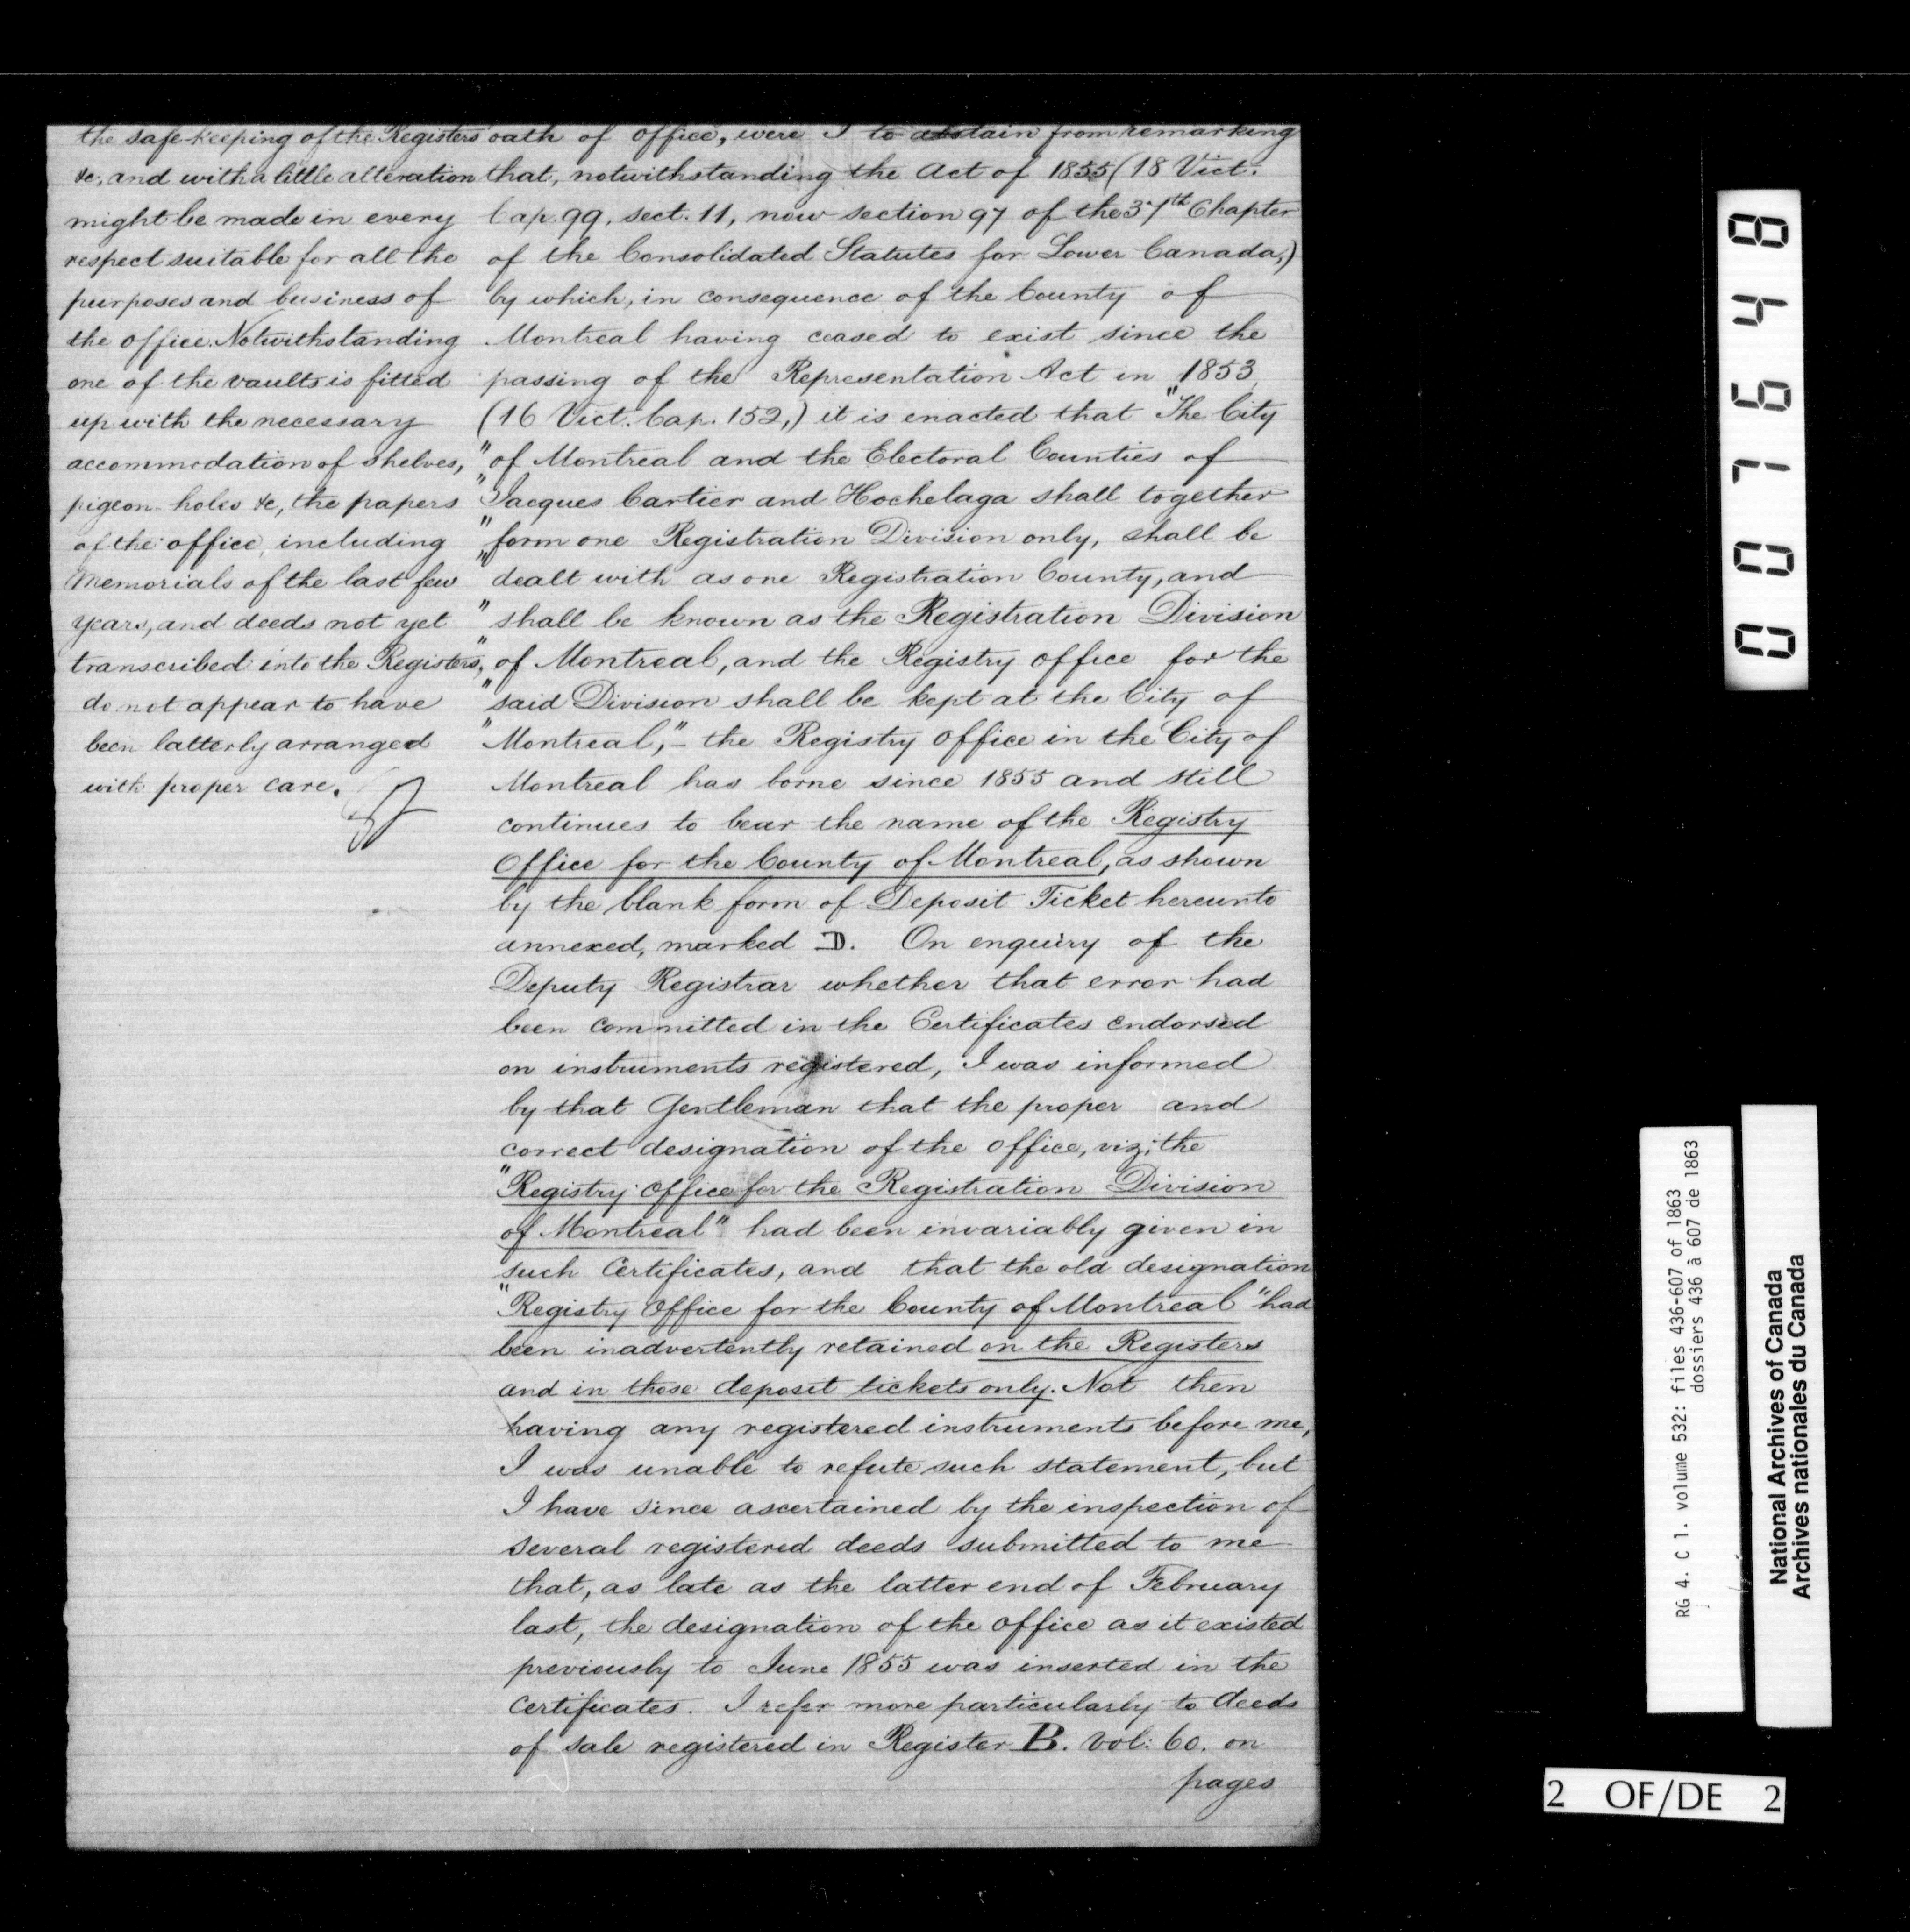 the safe-keeping of the Registers
&c, and with a little alteration
might be made in every
respect suitable for all the
purposes and business of
the office. Notwithstanding
one of the vaults is fitted
up with the necessary
accommodation of shelves,
pigeon-holes &c, the papers
of the office, including
Memorials of the last few
years, and deeds not yet
transcribed into the Registers,
do not appear to have
been latterly arranged
with proper care.
oath of office, were I to abstain from remarking
that, notwithstanding the Act of 1855 (18 Vict.
Cap. 99, sect. 11, now section 97 of the 37th Chapter
of the Consolidated Statutes for Lower Canada,)
by which, in consequence of the County of
Montreal having ceased to exist since the
passing of the Representation Act in 1853
(16 Vict. Cap. 152,) it is enacted that "The City
" of Montreal and the Electoral Counties of
" Jacques Cartier and Hochelaga shall together
" form one Registration Division only, shall be
" dealt with as one Registration County, and
" shall be known as the Registration Division
" of Montreal, and the Registry office for the
" said Division shall be kept at the City of
" Montreal," – the Registry office in the City of
Montreal has borne since 1855 and still
continues to bear the name of the Registry
Office for the County of Montreal, as shown
by the blank form of Deposit Ticket hereunto
annexed, marked D. On enquiry of the
Deputy Registrar whether that error had
been committed in the Certificates endorsed
on instruments registered, I was informed
by that Gentleman that the proper and
correct designation of the office, viz; the
"Registry office for the Registration Division
of Montreal" had been invariably given in
such Certificates, and that the old designation
"Registry Office for the County of Montreal" had
been inadvertently retained on the Registers
and in those deposit tickets only. Not then
having any registered instruments before me,
I was unable to refute such statement, but
I have since ascertained by the inspection of
several registered deeds submitted to me
that, as late as the latter end of February
last, the designation of the office as it existed
previously to June 1855 was inserted in the
Certificates. I refer more particularly to deeds
of sale registered in Register B. Vol: 60. on
pages
007648
RG 4. C 1. volume 532: files 436-607 of 1863
dossiers 436 à 607 de 1863
National Archives of Canada
Archives nationales du Canada
2 OF/DE 2